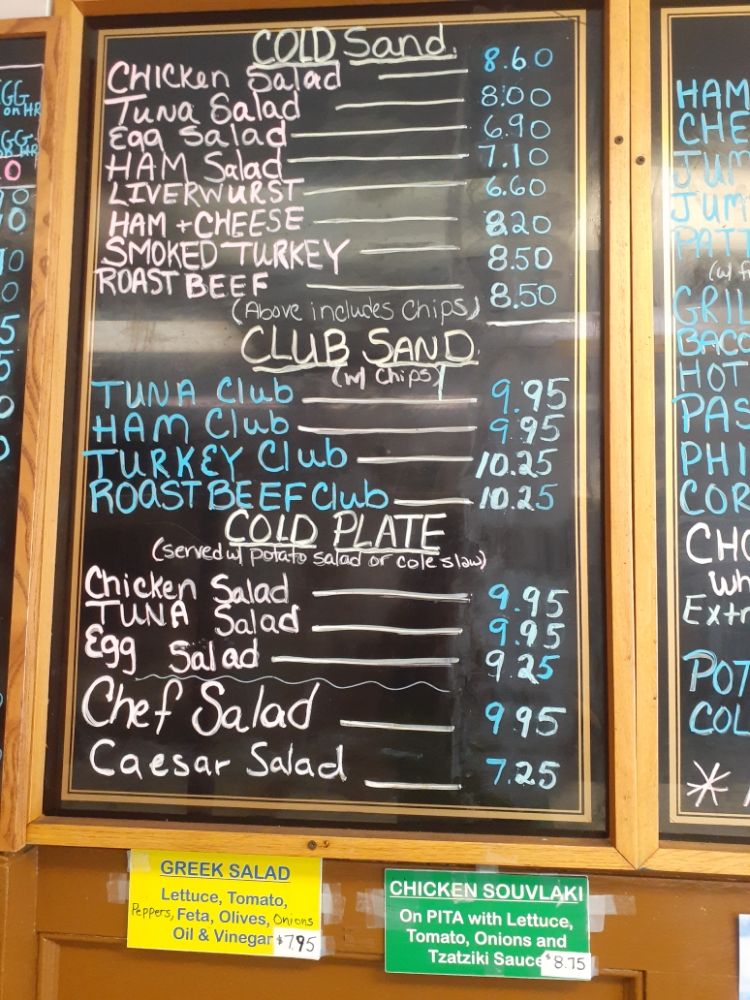 COLD Sand.
CHICKEN Salad 8.60
Tuna Salad 8.00
Egg Salad 6.90
HAM Salad 7.10
LIVERWURST 6.60
HAM + CHEESE 8.20
SMOKED TURKEY 8.50
ROAST BEEF 8.50
(Above includes Chips)
CLUB SAND.
(w/ Chips)
TUNA Club 9.95
HAM Club 9.95
TURKEY Club 10.25
ROAST BEEF Club 10.25
COLD PLATE
(served w/ potato salad or cole slaw)
Chicken Salad 9.95
TUNA Salad 9.95
Egg Salad 9.25
Chef Salad 9.95
Caesar Salad 7.25
GREEK SALAD
Lettuce, Tomato,
Peppers, Feta, Olives, Onions
Oil & Vinegar $7.95
CHICKEN SOUVLAKI
On PITA with Lettuce,
Tomato, Onions and
Tzatziki Sauce $8.75
HAM
CHE
JUM
JUM
PATT
GRIL
BACO
HOT
PAS
PHI
COR
CHO
Wh
Extr
POT
COL